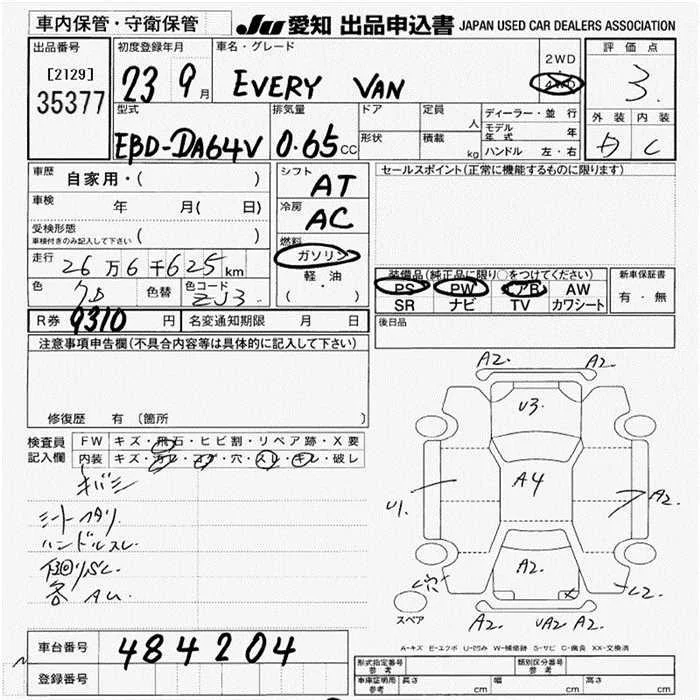 車内保管・守衛保管
JU 愛知 出品申込書 JAPAN USED CAR DEALERS ASSOCIATION
出品番号
[2129]
35377
初度登録年月
23 9月
車名・グレード
EVERY VAN
2WD
4WD
評価点
3.
外装 内装
C
型式
EBD-DA64V
排気量
0.65cc
ドア
形状
定員
人
積載
kg
ディーラー・並行
モデル年式 年
ハンドル 左・右
車歴
自家用・( )
車検
年 月( 日)
受検形態
車検付きのみ記入して下さい ( )
走行
26万6千625km
色
色替
色コード
ZJ3.
R券 9310 円
名変通知期限 月 日
シフト
AT
冷房
AC
燃料
ガソリン
軽・油
( )
セールスポイント(正常に機能するものに限ります)
装備品(純正品に限り○をつけてください)
PS PW エアB AW
SR ナビ TV カワシート
新車保証書
有・無
後日品
注意事項申告欄(不具合内容等は具体的に記入して下さい)
修復歴 有 〔箇所 〕
検査員記入欄
FW キズ・飛石・ヒビ割・リペア跡・X要
内装 キズ・汚レ・コゲ・穴・スレ・キレ・破レ
キバミ
シートヘタリ
ハンドルスレ
下回りSC
各AU
A2. A2.
U3.
A4
U1.
A2.
A2.
穴
スペア
A2. UA2 A2.
A-キズ E-エクボ U-凹み W-補修跡 S-サビ C-腐食 XX-交換済
車台番号 484204
登録番号
型式指定番号 参考
類別区分番号 参考
車庫証明用 参考 長さ cm 幅 cm 高さ cm